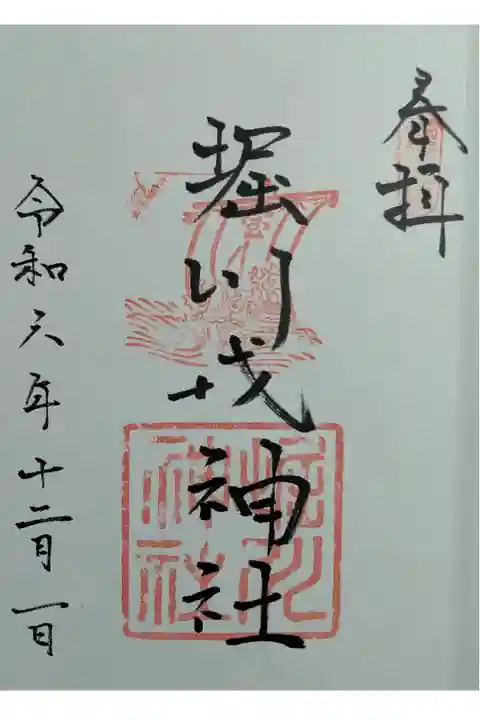 奉拝
堀川戎神社
令和六年十二月一日
堀川
神社